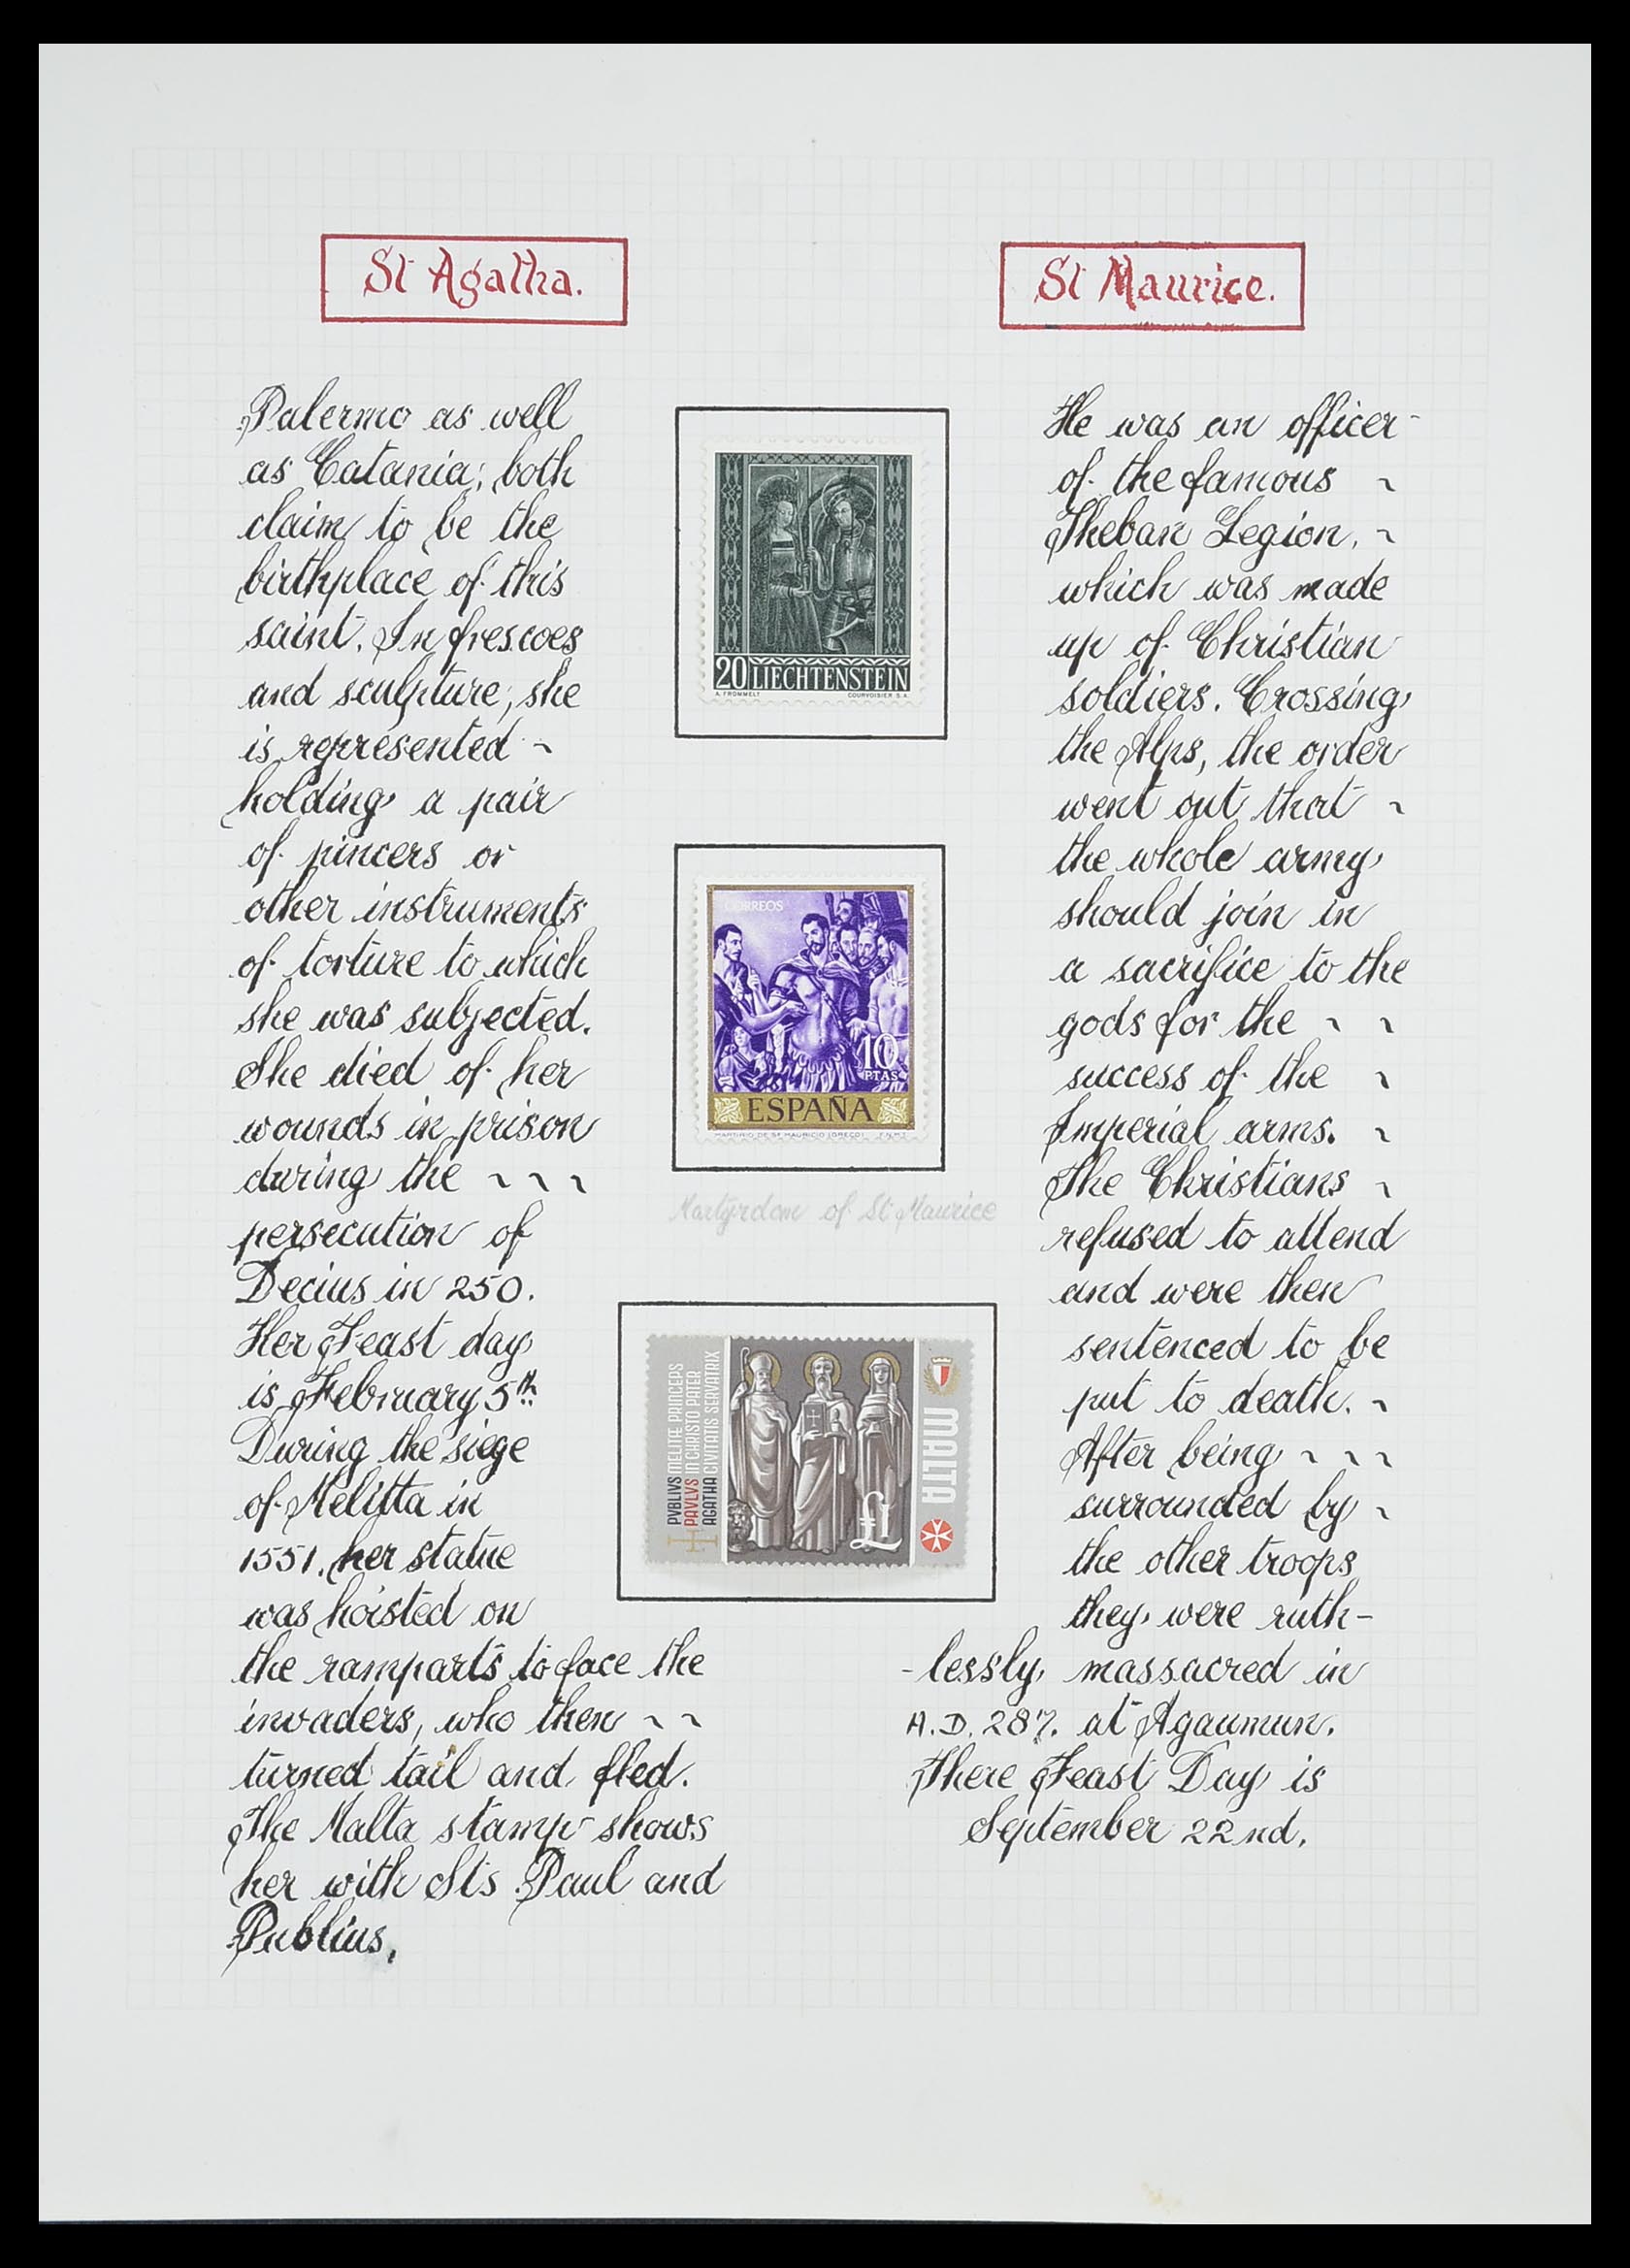 St Agatha.
Palermo as well
as Catania; both
claim to be the
birthplace of this
saint. In frescoes
and sculpture, she
is represented ~
holding a pair
of pincers or
other instruments
of torture to which
she was subjected.
She died of her
wounds in prison
during the ~ ~ ~
persecution of
Decius in 250.
Her Feast day
is February 5th
During the siege
of Melitta in
1551, her statue
was hoisted on
the ramparts to face the
invaders, who then ~ ~
turned tail and fled.
The Malta stamp shows
her with Sts Paul and
Publius.
20 LIECHTENSTEIN
A. FROMMELT COURVOISIER S.A.
CORREOS
10
PTAS
ESPAÑA
MARTIRIO DE S. MAURICIO (GRECO) F.N.M.T.
Martyrdom of St Maurice
PVBLIVS MELITE PRINCEPS
PAVLVS IN CHRISTO PATER
AGATHA CIVITATIS SERVATRIX
£1
MALTA
St Maurice.
He was an officer
of the famous ~
Theban Legion, ~
which was made
up of Christian
soldiers. Crossing
the Alps, the order
went out that ~
the whole army
should join in
a sacrifice to the
gods for the ~ ~
success of the ~
Imperial arms. ~
The Christians ~
refused to attend
and were then
sentenced to be
put to death. ~
After being ~ ~ ~
surrounded by ~
the other troops
they were ruth-
-lessly massacred in
A.D. 287. at Agaumun.
There Feast Day is
September 22nd.